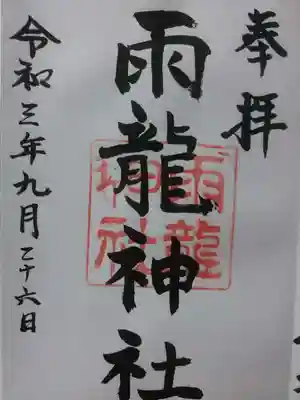 奉拝
雨龍神社
雨龍
神社
令和三年九月二十六日